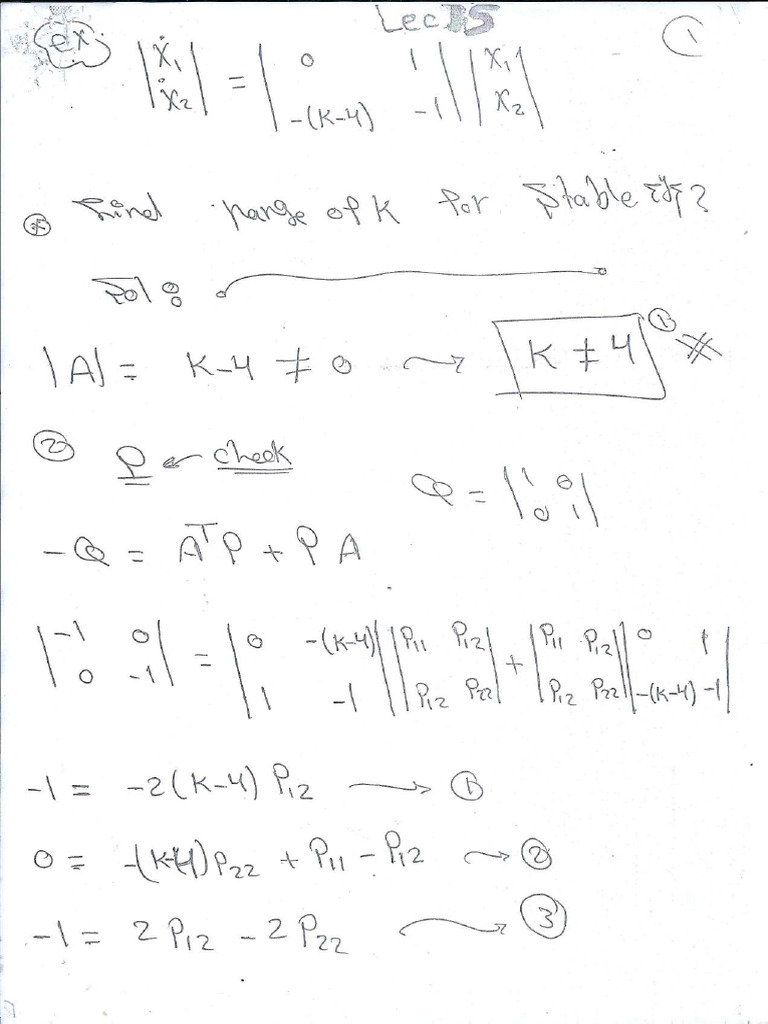 Lec 35
①
ex
|ẋ₁| = | 0 1 | |x₁|
|ẋ₂| |-(K-4) -1| |x₂|
* Find range of K for stable sys?
Sol:
|A| = K-4 ≠ 0 → K ≠ 4 ① #
② P ← check
Q = |1 0|
|0 1|
-Q = AᵀP + PA
|-1 0| = |0 -(K-4)| |P₁₁ P₁₂| + |P₁₁ P₁₂| |0 1|
|0 -1| |1 -1| |P₁₂ P₂₂| |P₁₂ P₂₂| |-(K-4) -1|
-1 = -2(K-4) P₁₂ → ①
0 = -(K-4)P₂₂ + P₁₁ - P₁₂ → ②
-1 = 2P₁₂ - 2P₂₂ → ③